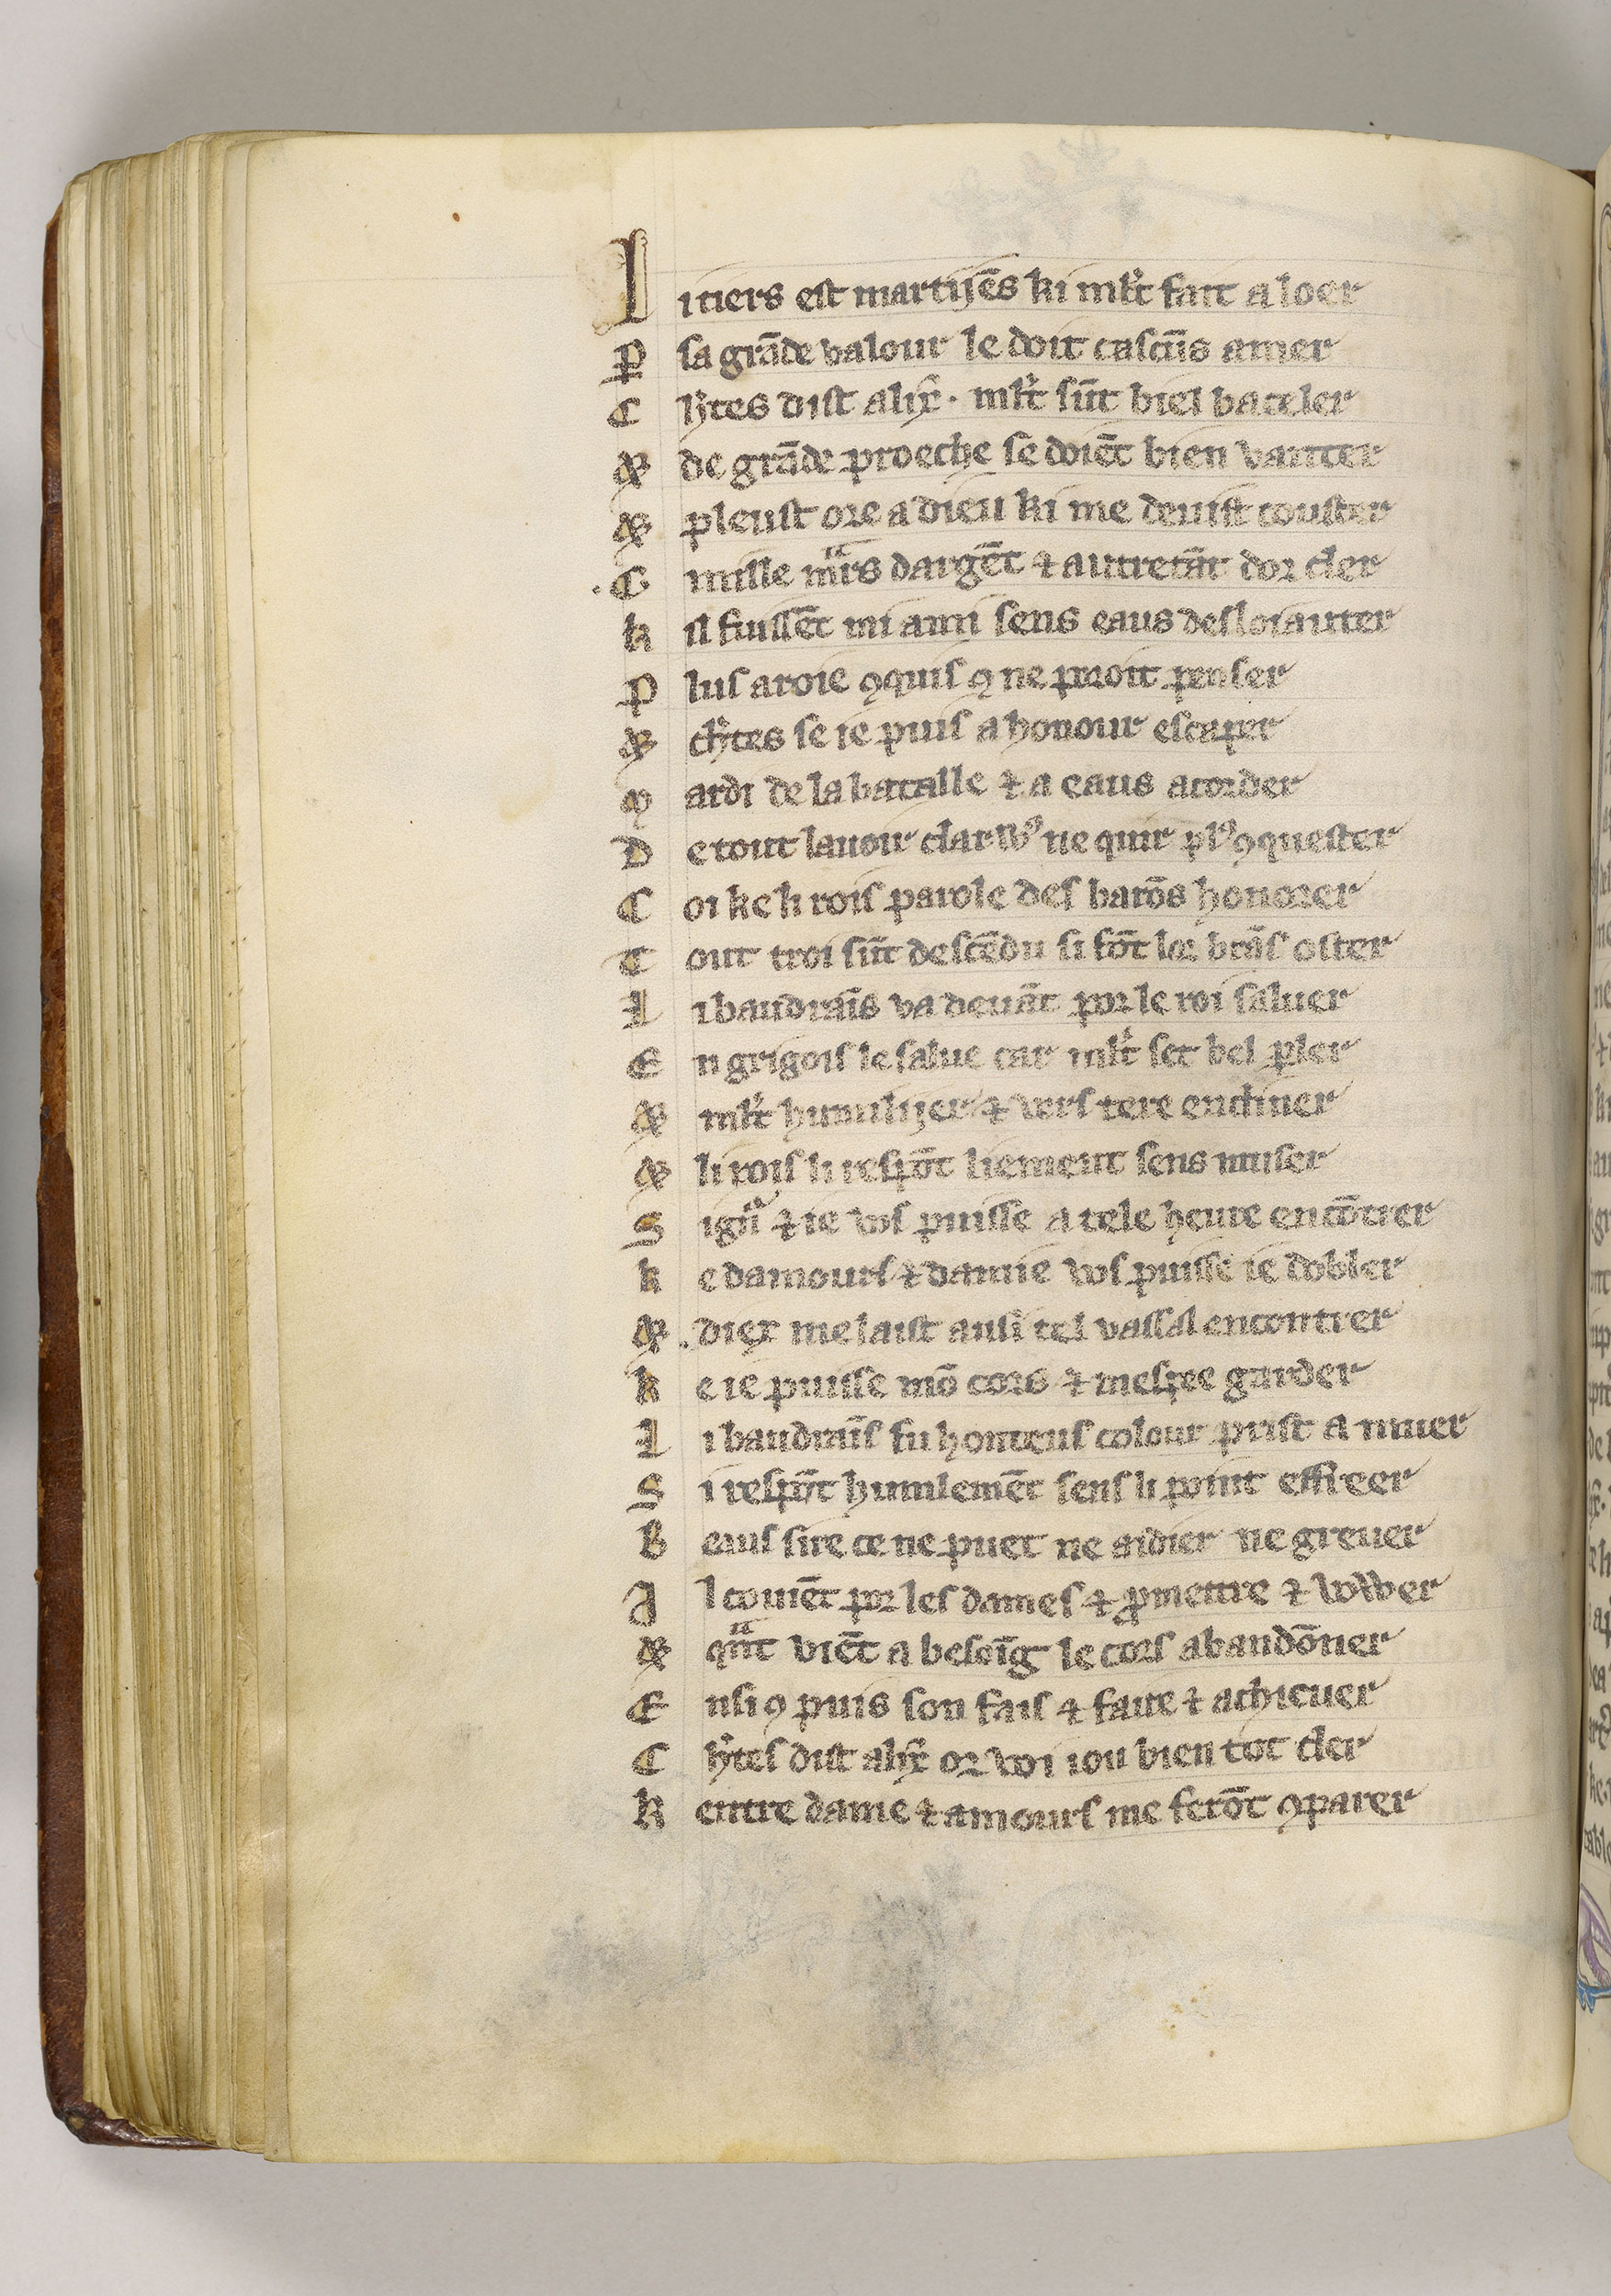 L itiers est martijēs ki ml't fait a loer
ꝑ sa grāde valour le doit cascūs amer
C h'tes dist alix̄ · ml't sūt biel bateler
⁊ de grāde proeche se doiēt bien vanter
⁊ pleust ore a dieu ki me deuist couster
.C. mille mars dargēt ⁊ autretāt dor cler
k il fuissēt mi ami sens eaus desloiauter
P lus aroie ꝯquis ꝯ ne poroit penser
⁊ ch'tes se ie puis a honour escaper
ꝯ ardi de la bataille ⁊ a eaus acorder
D e tout lauoir clarw9 ne quir pl9 ꝯquester
C oi ke li rois parole des barōs honorer
T out troi sūt descēdu si fōt lor brās oster
L i baudraīs va deuāt por le roi saluer
E n grigois le salue car ml't set bel ꝑler
⁊ ml't humilijer ⁊ v̄s tere encliner
⁊ li rois li respōt liement sens muser
S ign̄ ⁊ ie vos puisse a tele heure encōtrer
k e damours ⁊ damie vos puisse ie dobler
⁊ diex me laist ausi tel vassal encontrer
k e ie puisse mō cors ⁊ mespee garder
L i baudraīs fu honteus colour prist a muer
S i respōt humlemēt sens li point effreer
B eaus sire ce ne puet ne aidier ne greuer
A l couiēt por les dames ⁊ ꝓmettre ⁊ vower
⁊ qant viēt a besoīg le cors abandōner
E nsi ꝯ puis son fais ⁊ faire ⁊ achieuer
C h'tes dist alix̄ or voi iou bien tot cler
K entre dame ⁊ amours me ferōt ꝯparer